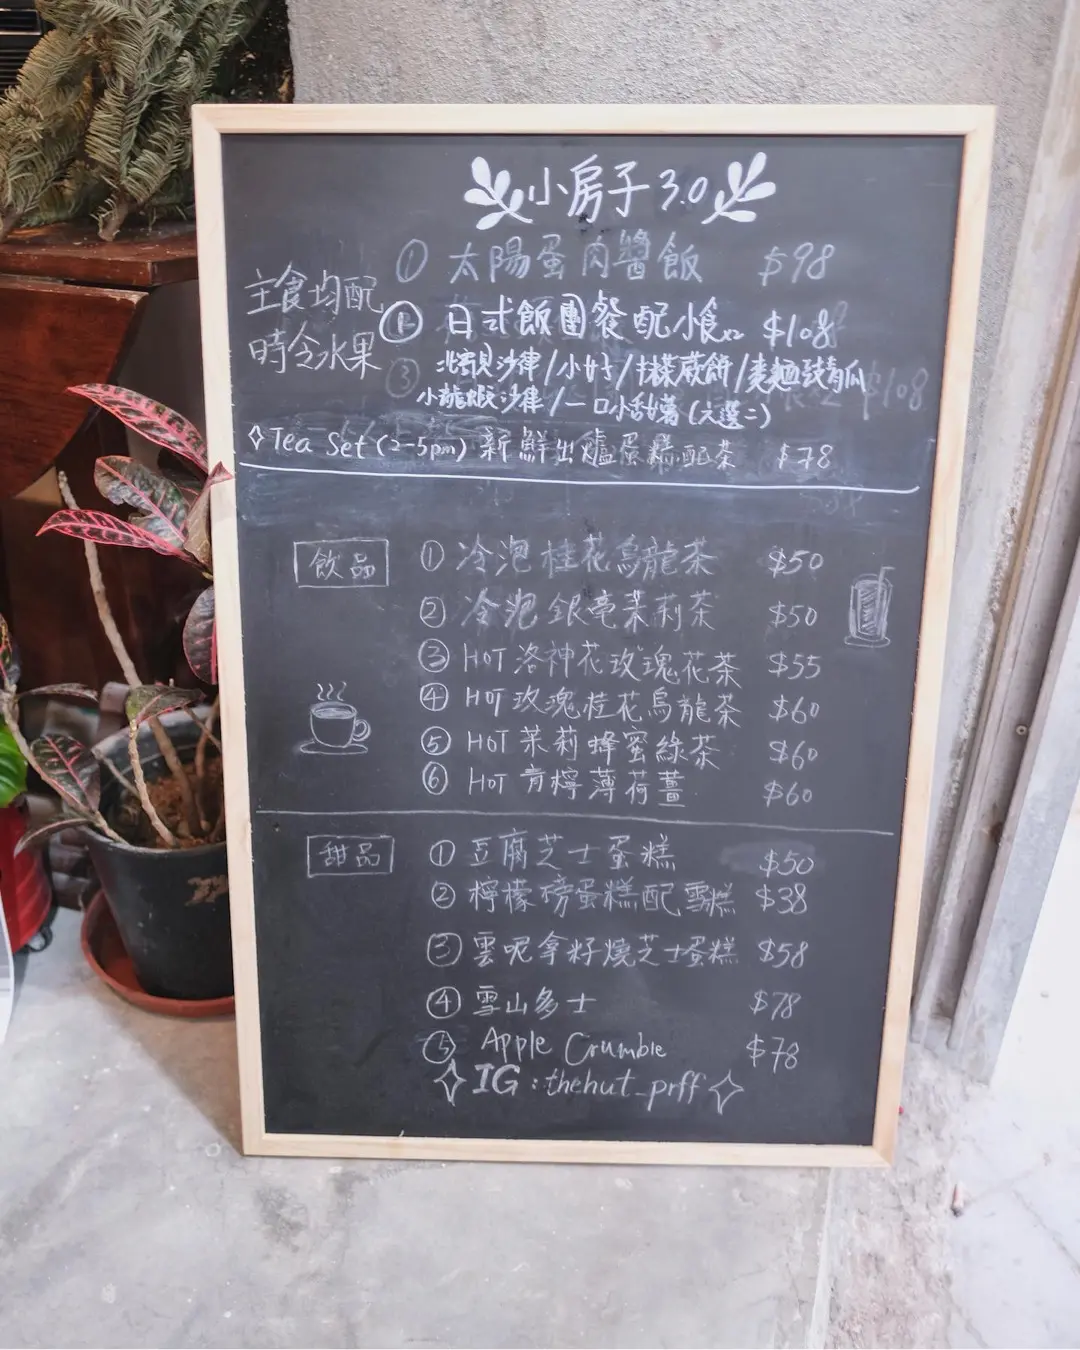 小房子 3.0
主食均配
時令水果
① 太陽蛋肉醬飯 $98
② 日式飯團餐配小食x2 $108
北寄貝沙律/小丸子/抹茶蕨餅/蕎麵豉青瓜
小龍蝦沙律/一口小甜薯(六選二)
Tea Set (2-5pm) 新鮮出爐蛋糕配茶 $78
飲品
① 冷泡桂花烏龍茶 $50
② 冷泡銀毫茉莉茶 $50
③ HOT 洛神花玫瑰花茶 $55
④ HOT 玫瑰桂花烏龍茶 $60
⑤ HOT 茉莉蜂蜜綠茶 $60
⑥ HOT 青檸薄荷薑 $60
甜品
① 豆腐芝士蛋糕 $50
② 檸檬磅蛋糕配雪糕 $38
③ 雲呢拿籽燒芝士蛋糕 $58
④ 雪山多士 $78
⑤ Apple Crumble $78
IG : thehut_prff